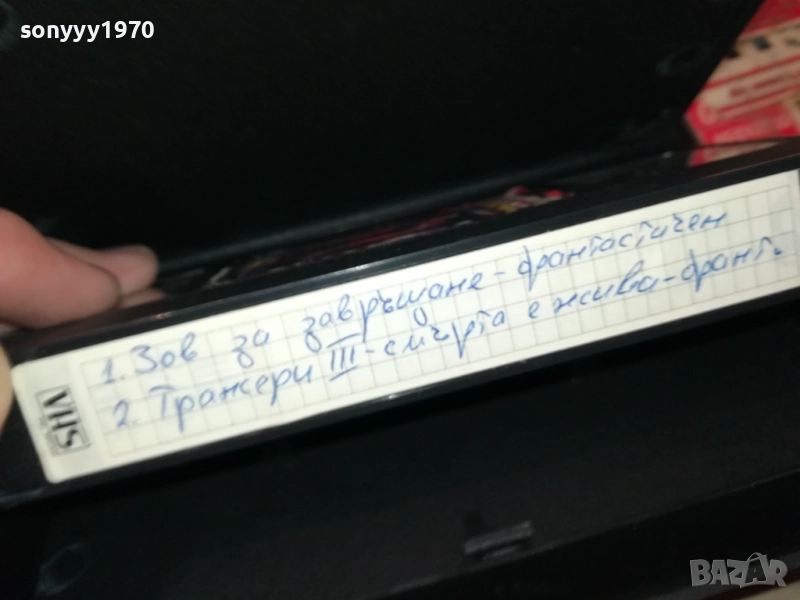 sonyyy1970
1. Зов за завръщане - фантастичен
2. Транжери III - смърта е жива - фант.
VHS
BAZAR